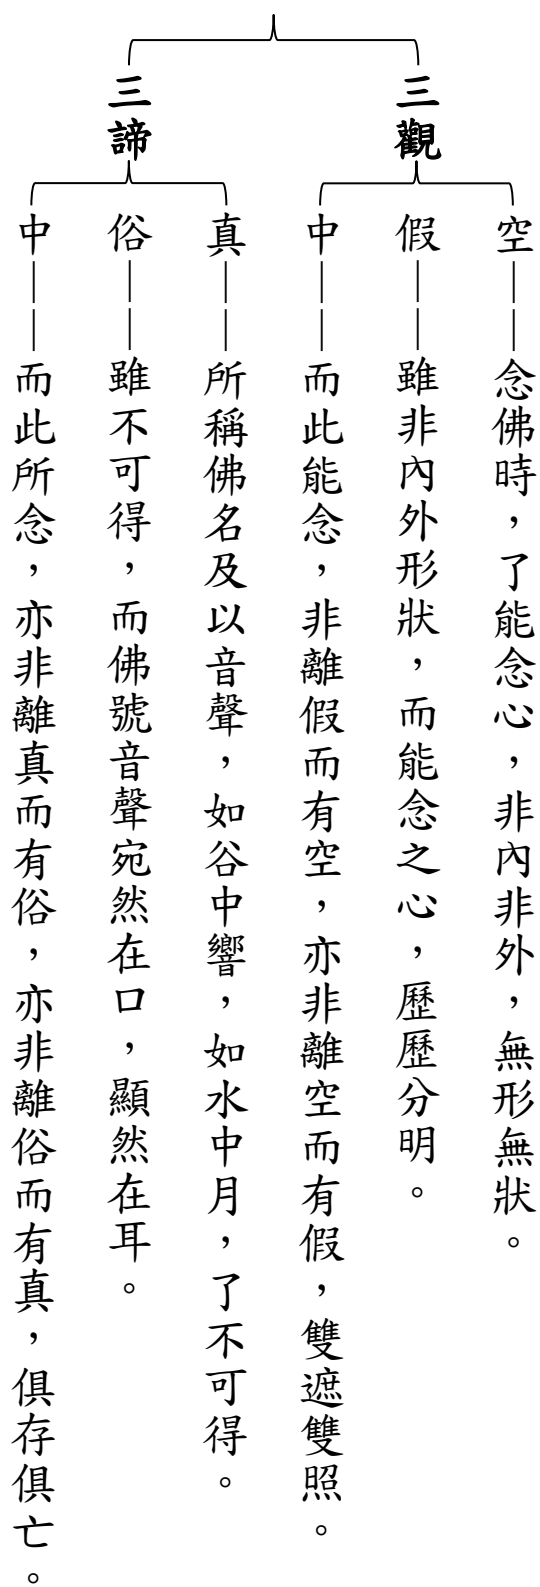 三觀
空——念佛時,了能念心,非內非外,無形無狀。
假——雖非內外形狀,而能念之心,歷歷分明。
中——而此能念,非離假而有空,亦非離空而有假,雙遮雙照。
三諦
真——所稱佛名及以音聲,如谷中響,如水中月,了不可得。
俗——雖不可得,而佛號音聲宛然在口,顯然在耳。
中——而此所念,亦非離真而有俗,亦非離俗而有真,俱存俱亡。